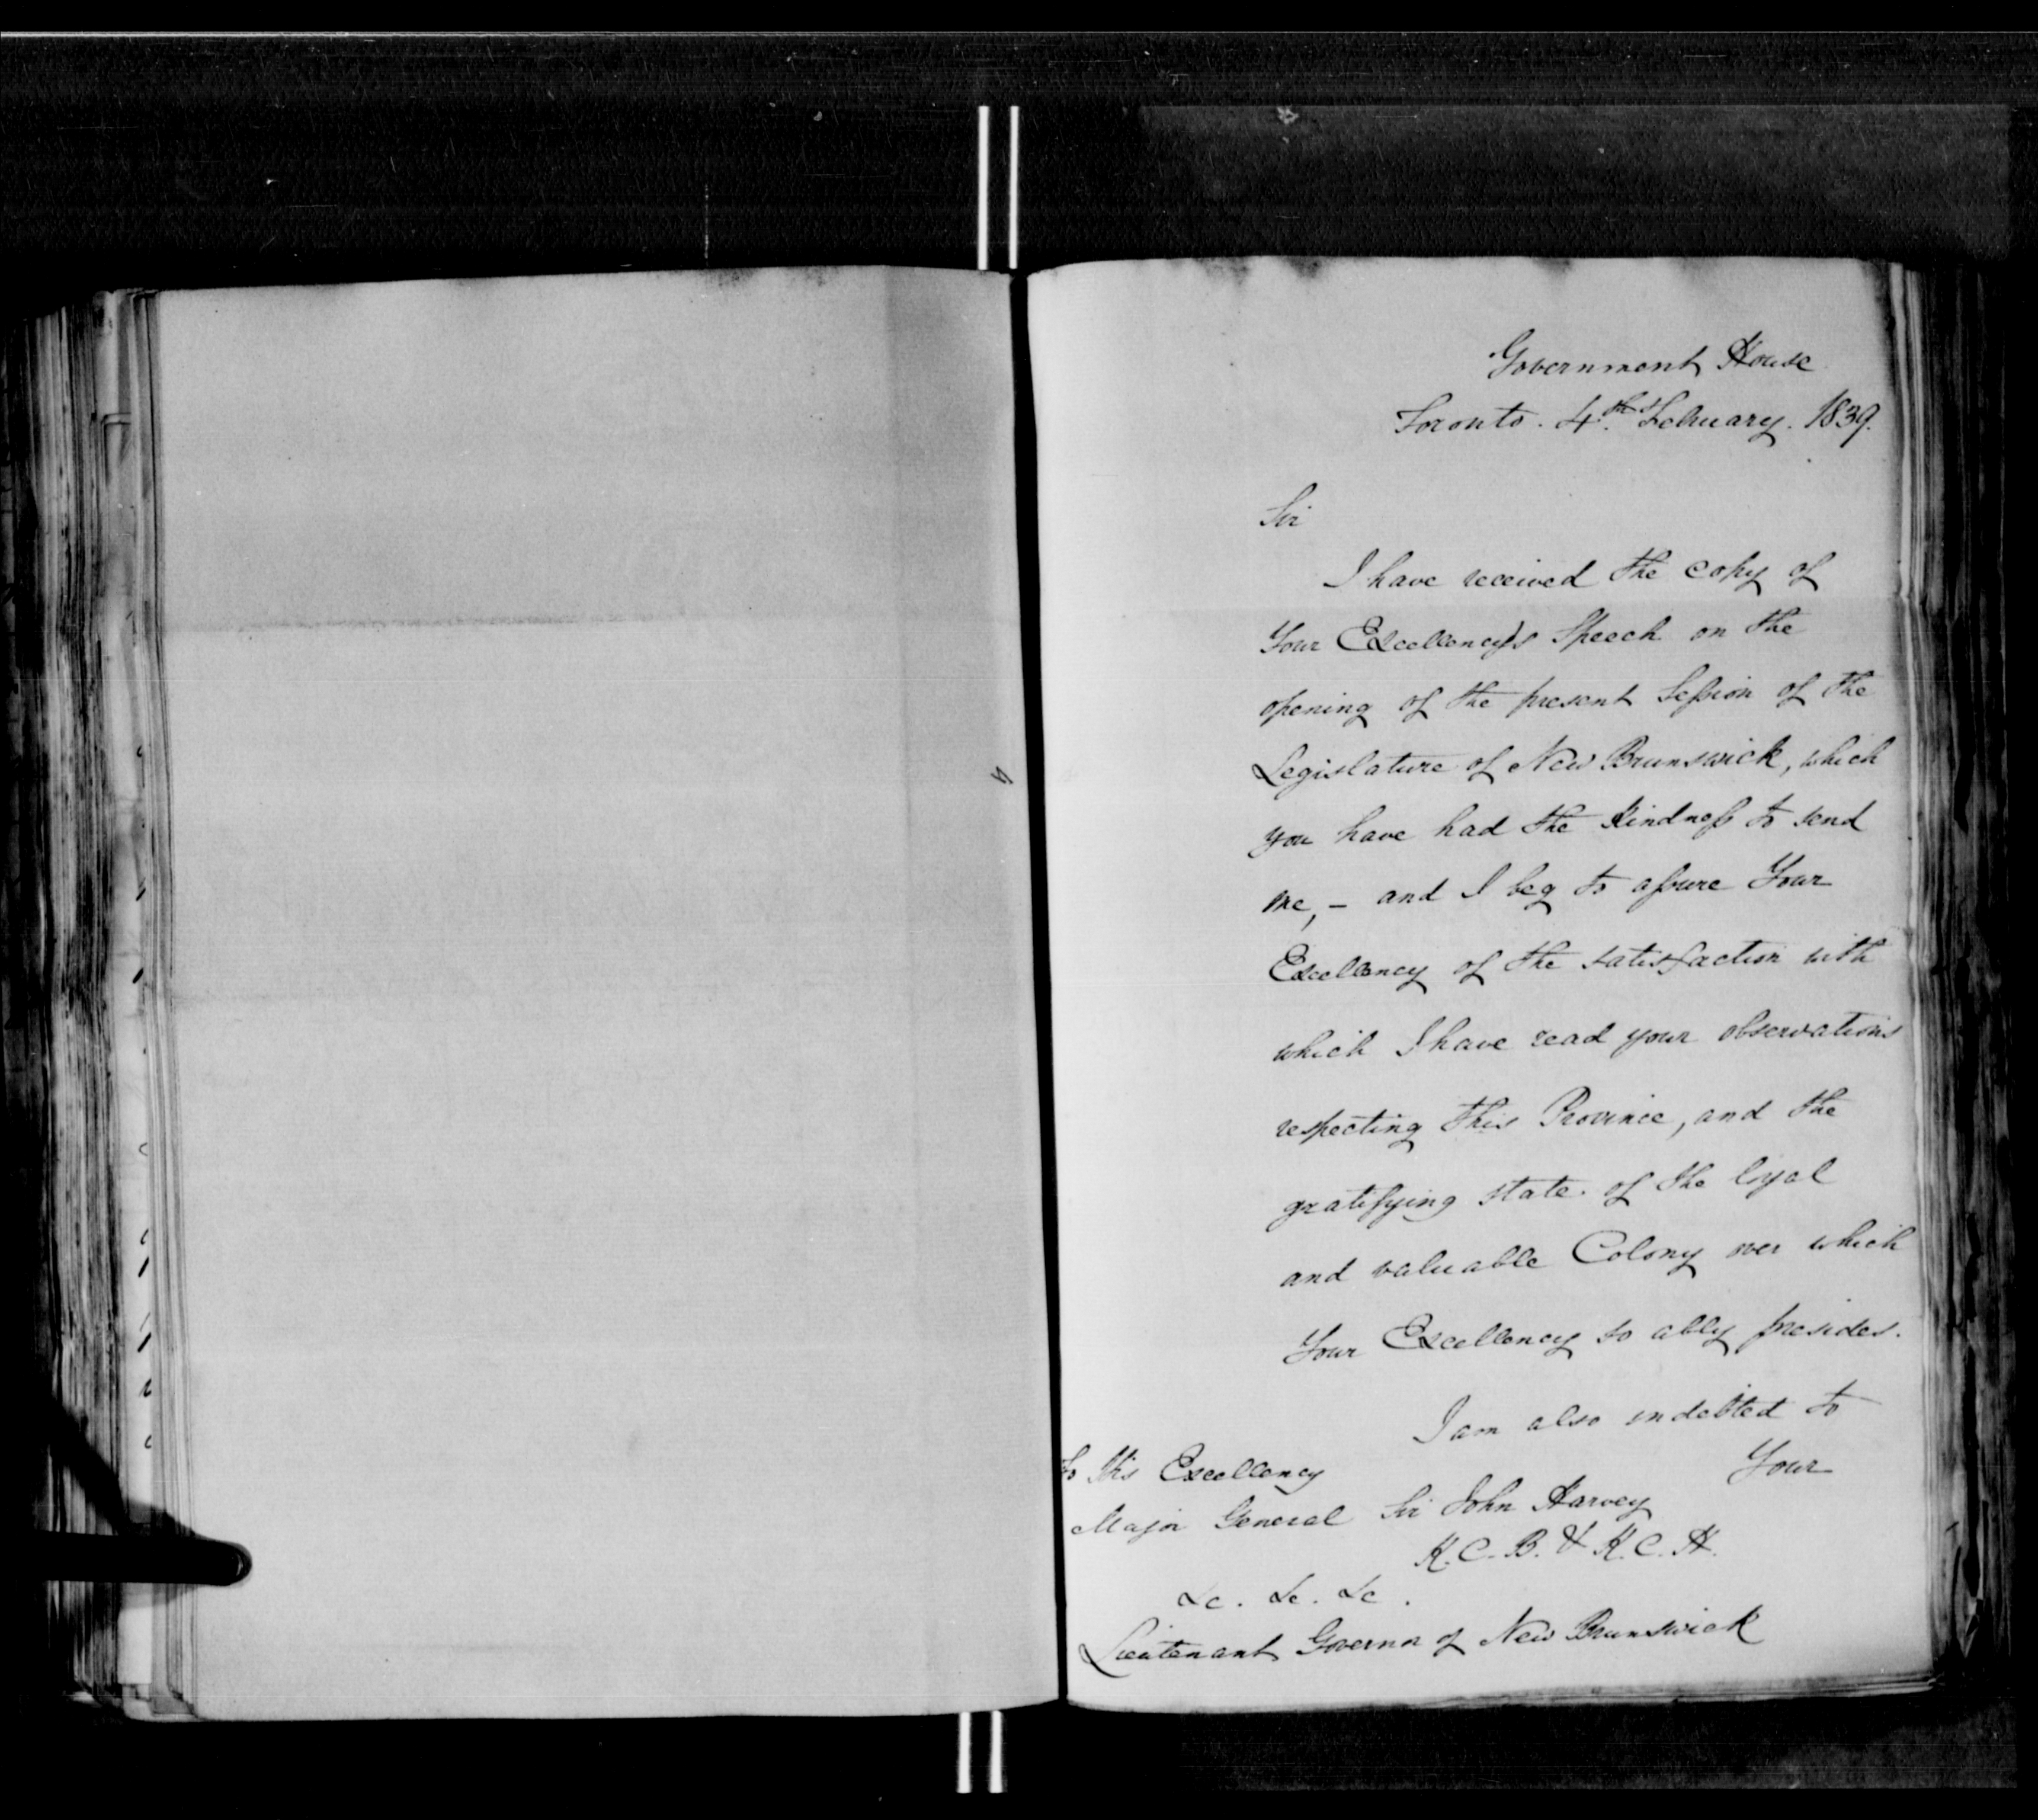 Government House
Toronto. 4th February. 1839.
Sir
I have received the copy of
Your Excellency's Speech on the
opening of the present Session of the
Legislature of New Brunswick, which
you have had the kindness to send
me, – and I beg to assure Your
Excellency of the satisfaction with
which I have read your observations
respecting this Province, and the
gratifying state of the loyal
and valuable Colony over which
Your Excellency so ably presides.
I am also indebted to
Your
To His Excellency
Major General Sir John Harvey
K.C.B. & K.C.H.
&c. &c. &c.
Lieutenant Governor of New Brunswick